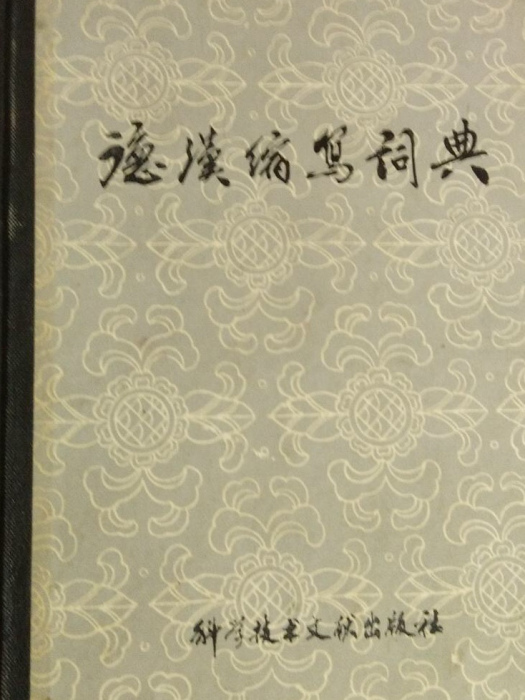 德漢缩寫詞典
科学技术文献出版社